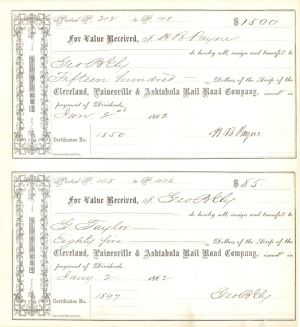 Posted P. 302 to P. 105
$1500
For Value Received, I H B Payne
do hereby sell, assign and transfer to
Geo B Ely
Fifteen hundred Dollars of the Scrip of the
Cleveland, Painesville & Ashtabula Rail Road Company, issued in
payment of Dividends.
Jan 2nd 1862
Certificates No.
1850
H. B. Payne
Posted P. 105 to P.
$85
For Value Received, I Geo B Ely
do hereby sell, assign and transfer to
G. Taylor
Eighty five Dollars of the Scrip of the
Cleveland, Painesville & Ashtabula Rail Road Company, issued in
payment of Dividends.
Jany 2 1862
Certificates No.
1897
Geo B Ely